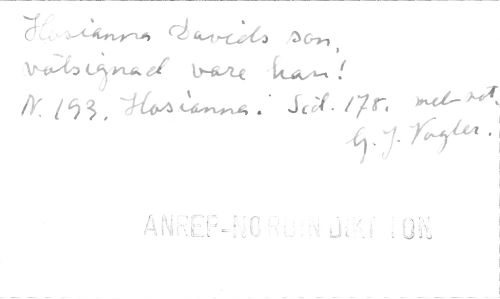 Hosianna Davids son,
välsignad vare han!
N. 193. Hosianna. Sid. 178. mel. not.
G. J. Vogler.
ANREP-NORDIN DIKT ION